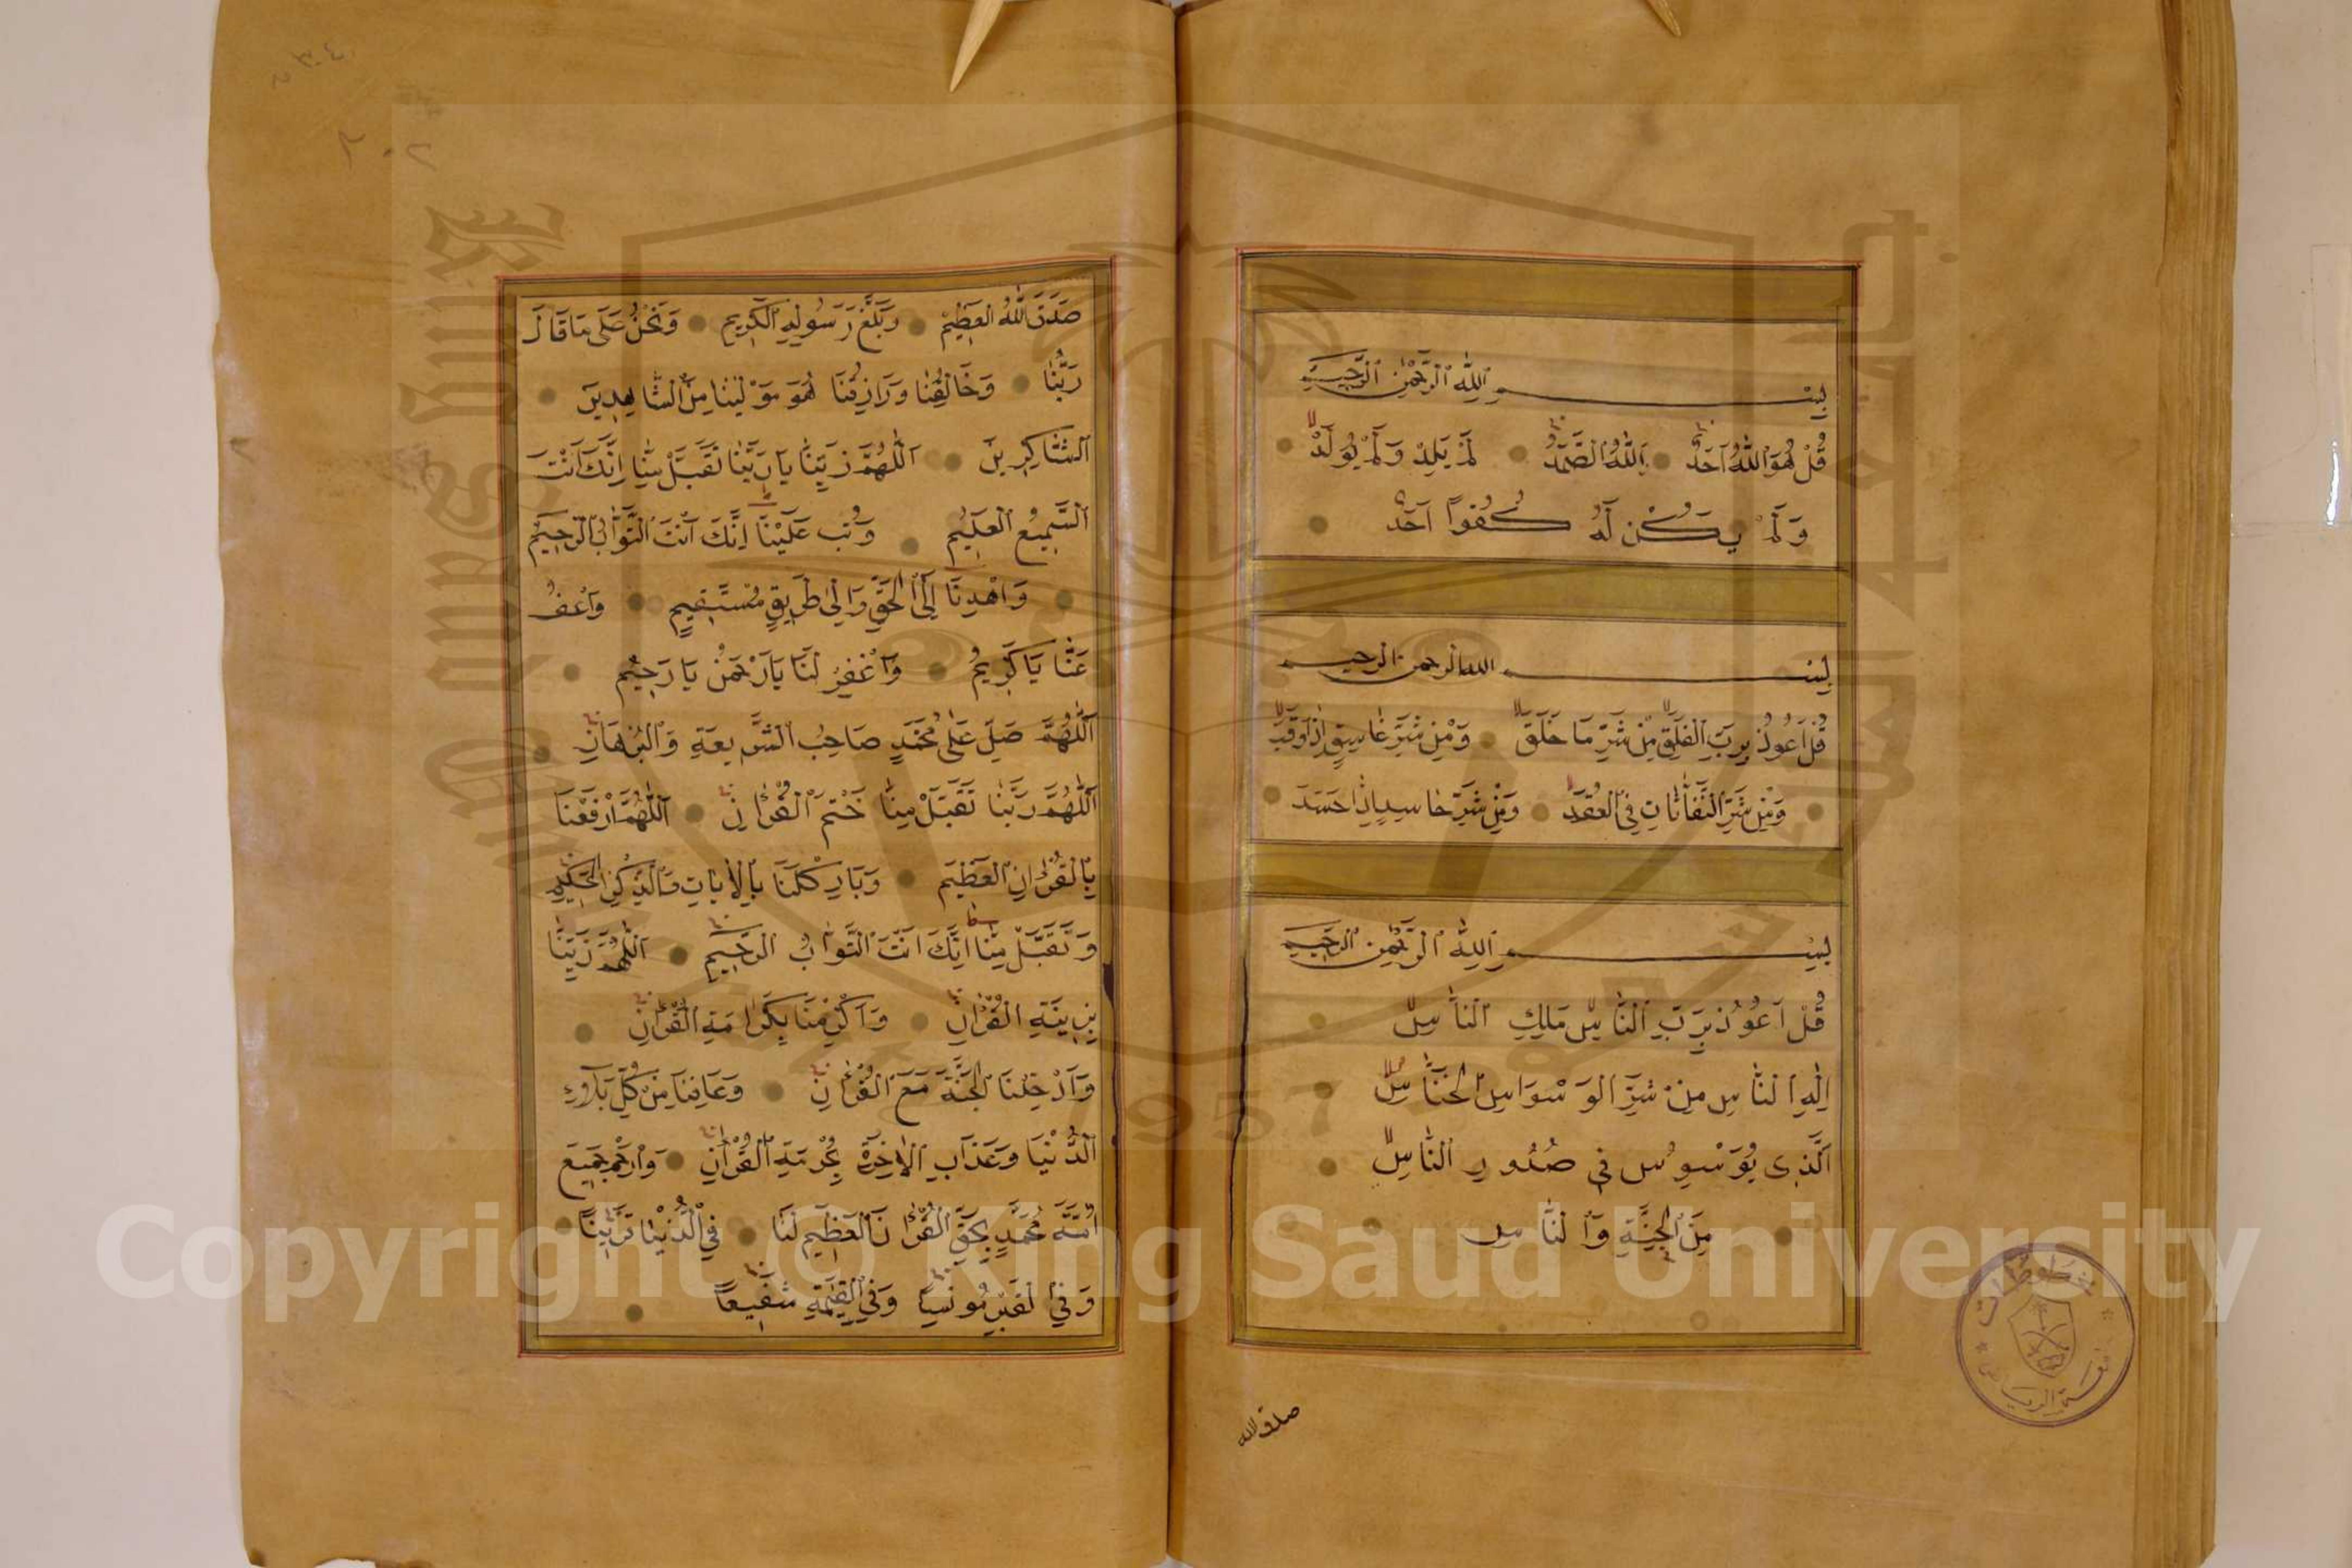 بِسْمِ اللّٰهِ الرَّحْمٰنِ الرَّحِيمِ
قُلْ هُوَ اللّٰهُ اَحَدٌ اَللّٰهُ الصَّمَدُ لَمْ يَلِدْ وَلَمْ يُولَدْ
وَلَمْ يَكُنْ لَهُ كُفُواً اَحَدٌ
بِسْمِ الله الرحمن الرحيم
قُلْ اَعُوذُ بِرَبِّ الْفَلَقِ مِنْ شَرِّ مَا خَلَقَ وَمِنْ شَرِّ غَاسِقٍ اِذَا وَقَبَ
وَمِنْ شَرِّ النَّفَّاثَاتِ فِي الْعُقَدِ وَمِنْ شَرِّ حَاسِدٍ اِذَا حَسَدَ
بِسْمِ اللّٰهِ الرَّحْمٰنِ الرَّحِيمِ
قُلْ اَعُوذُ بِرَبِّ النَّاسِ مَلِكِ النَّاسِ
اِلٰهِ النَّاسِ مِنْ شَرِّ الْوَسْوَاسِ الْخَنَّاسِ
اَلَّذِى يُوَسْوِسُ فِى صُدُورِ النَّاسِ
مِنَ الْجِنَّةِ وَالنَّاسِ
صدق الله
صَدَقَ اللّٰهُ الْعَظِيمُ وَبَلَّغَ رَسُولِهِ الْكَرِيمِ وَنَحْنُ عَلَى مَا قَالَ
رَبُّنَا وَخَالِقُنَا وَرَازِقُنَا هُوَ مَوْلٰينَا مِنَ الشَّاهِدِينَ
اَلشَّاكِرِينَ اَللّٰهُمَّ زَيِّنَّا يَا رَبَّنَا تَقَبَّلْ مِنَّا اِنَّكَ اَنْتَ
اَلسَّمِيعُ الْعَلِيمُ وَتُبْ عَلَيْنَا اِنَّكَ اَنْتَ التَّوَّابُ الرَّحِيمُ
وَاهْدِنَا اِلَى الْحَقِّ وَاِلٰى طَرِيقٍ مُسْتَقِيمٍ وَاعْفُ
عَنَّا يَا كَرِيمُ وَاغْفِرْ لَنَا يَا رَحْمٰنُ يَا رَحِيمُ
اَللّٰهُمَّ صَلِّ عَلٰى مُحَمَّدٍ صَاحِبُ الشَّرِيعَةِ وَالْبُرْهَانِ
اَللّٰهُمَّ رَبَّنَا تَقَبَّلْ مِنَّا خَتْمَ الْقُرْاٰنِ اَللّٰهُمَّ ارْفَعْنَا
بِالْقُرْاٰنِ الْعَظِيمِ وَبَارِكْ لَنَا بِالْاٰيَاتِ وَالذِّكْرِ الْحَكِيمِ
وَتَقَبَّلْ مِنَّا اِنَّكَ اَنْتَ التَّوَّابُ الرَّحِيمُ اَللّٰهُمَّ زَيِّنَّا
بِزِينَةِ الْقُرْاٰنِ وَاَكْرِمْنَا بِكَرَامَةِ الْقُرْاٰنِ
وَاَدْخِلْنَا الْجَنَّةَ مَعَ الْقُرْاٰنِ وَعَافِنَا مِنْ كُلِّ بَلَاءِ
الدُّنْيَا وَعَذَابِ الْاٰخِرَةِ بِحُرْمَةِ الْقُرْاٰنِ وَارْحَمْ جَمِيعَ
اُمَّةِ مُحَمَّدٍ بِحَقِّ الْقُرْاٰنَ الْعَظِيمِ لَنَا فِي الدُّنْيَا قَرِيناً
وَفِي الْقَبْرِ مُونِساً وَفِي الْقِيٰمَةِ شَفِيعاً
Copyright © King Saud University
1957